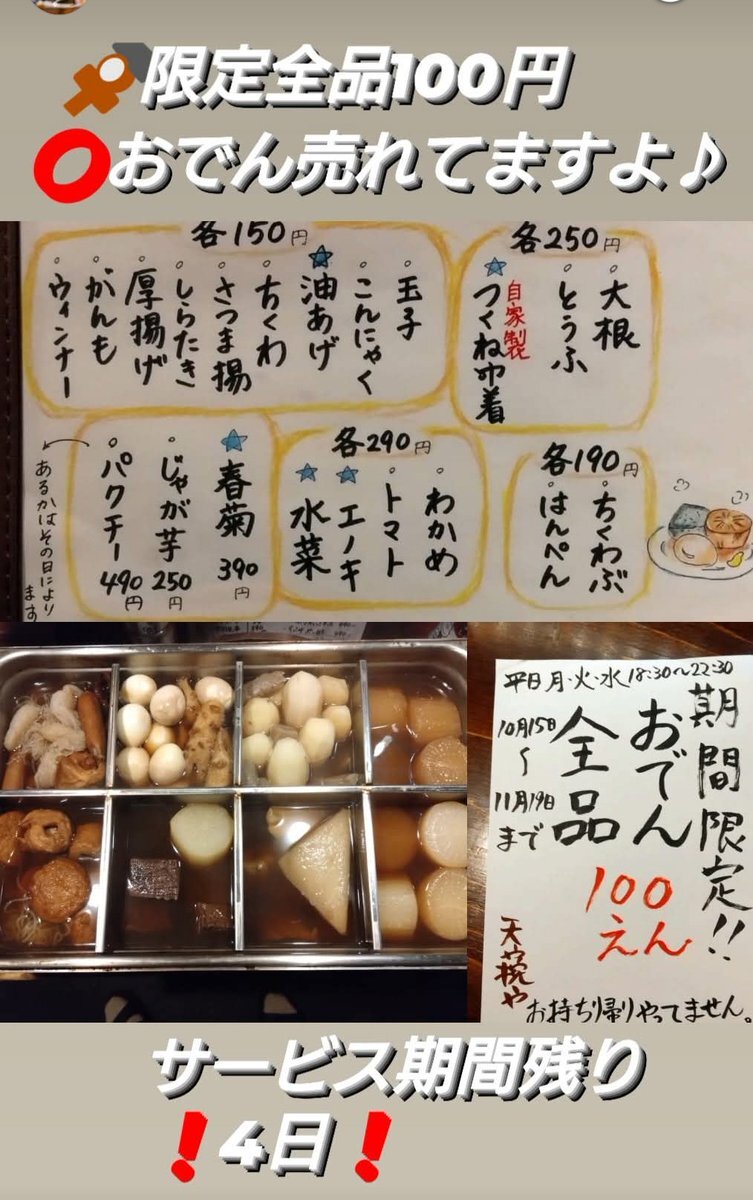 限定全品100円
おでん売れてますよ♪
各150円
玉子
こんにゃく
油あげ
ちくわ
さつま揚
しらたき
厚揚げ
がんも
ウィンナー
各250円
大根
とうふ
自家製
つくね巾着
春菊 390円
じゃが芋 250円
パクチー 490円
あるかはその日により
ます
各290円
わかめ
トマト
エノキ
水菜
各190円
ちくわぶ
はんぺん
平日月・火・水 18:30〜22:30
期間限定!!
おでん
全品
100
えん
10月15日
〜
11月19日
まで
お持ち帰りやってません。
サービス期間残り
❗4日❗